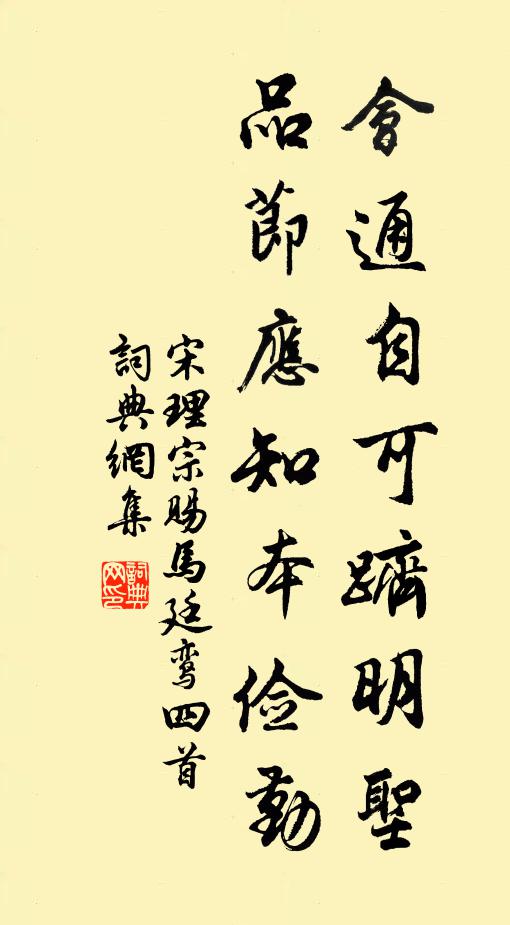 會通自可躋明聖
品節應知本儉勤
宋理宗賜馬廷鸞四首
詞典網集
詞典网印